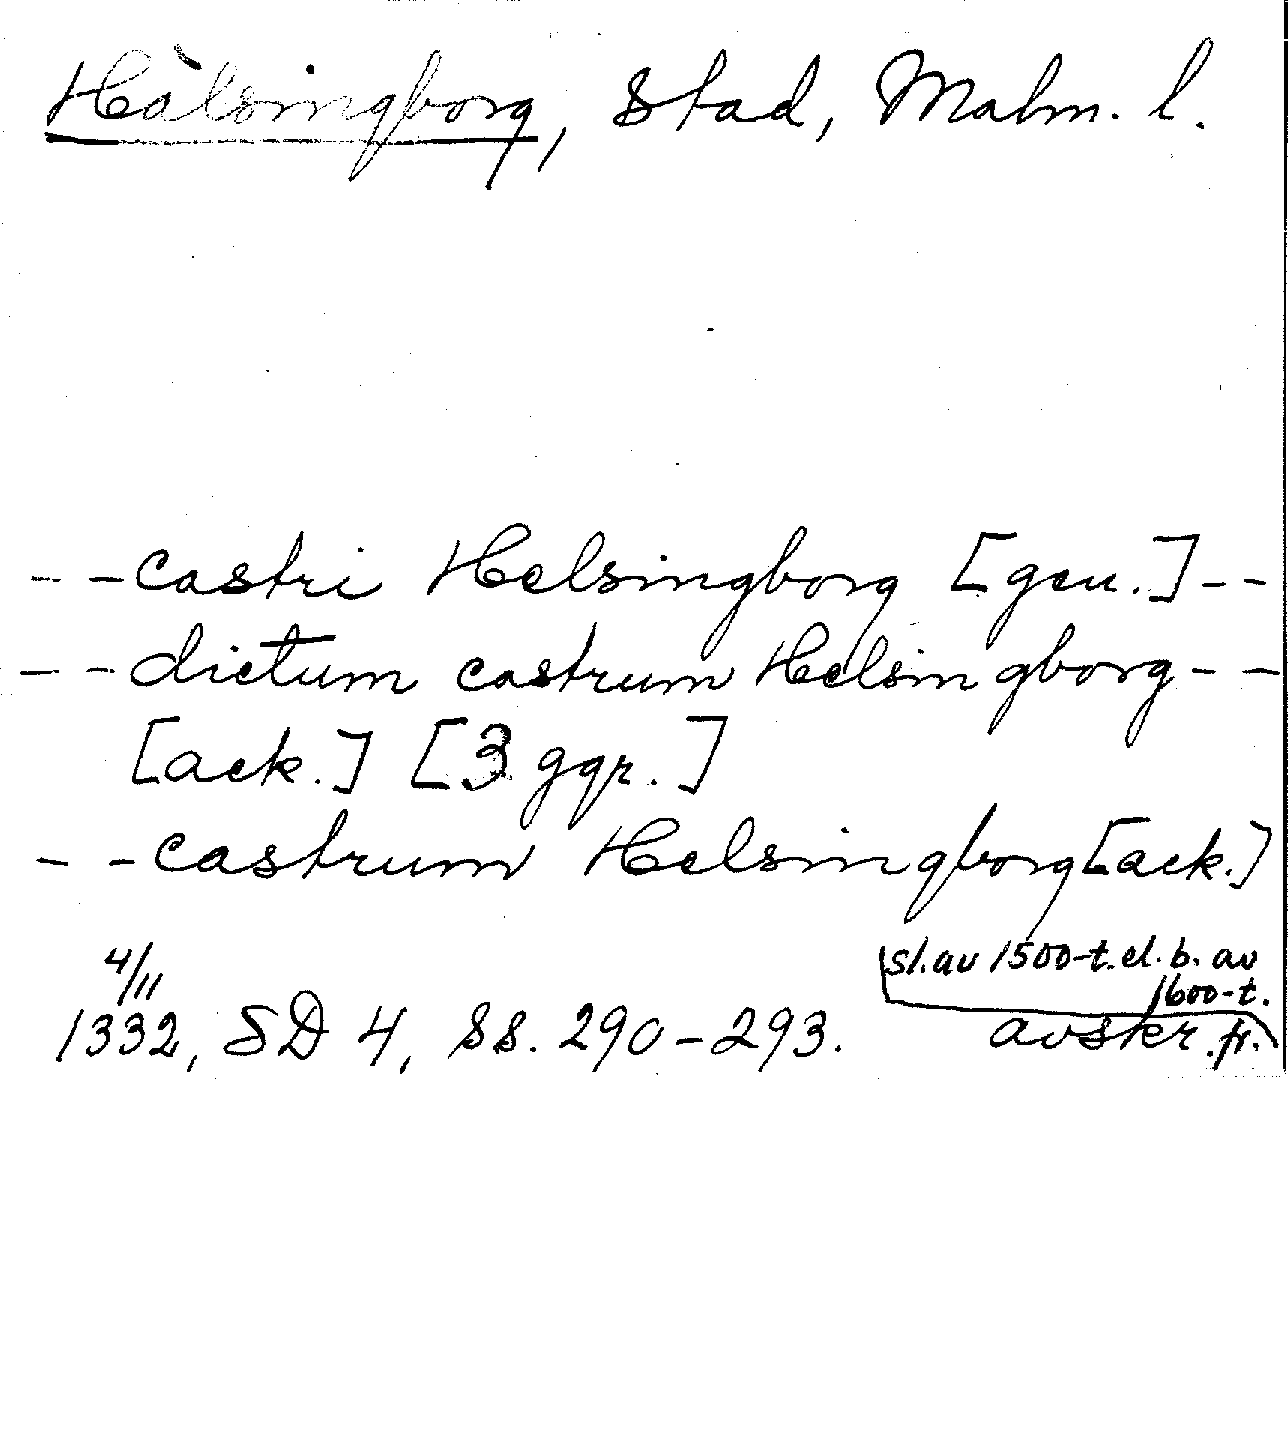 Hälsingborg, stad, Malm. l.
- - castri Helsingborg [gen.] - -
- - dictum castrum Helsingborg - -
[ack.] [3 ggr.]
- - castrum Helsingborg [ack.]
4/11
1332, SD 4, ss. 290-293. avskr. fr.
sl. av 1500-t. el. b. av
1600-t.